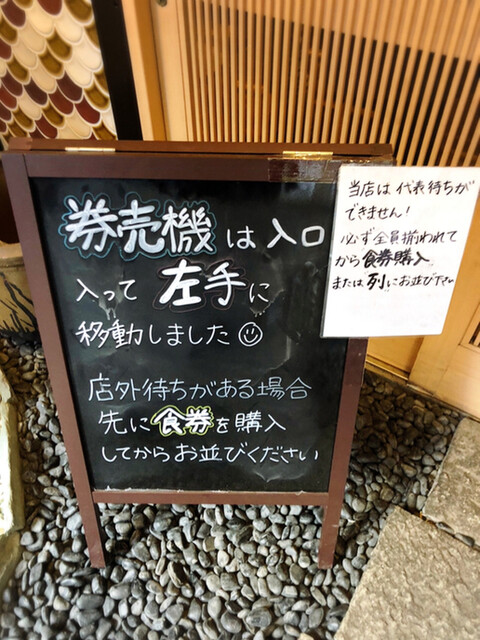 券売機は入口
入って左手に
移動しました☺
店外待ちがある場合
先に食券を購入
してからお並びください
当店は代表待ちが
できません!
必ず全員揃われて
から食券購入
または列にお並び下さい